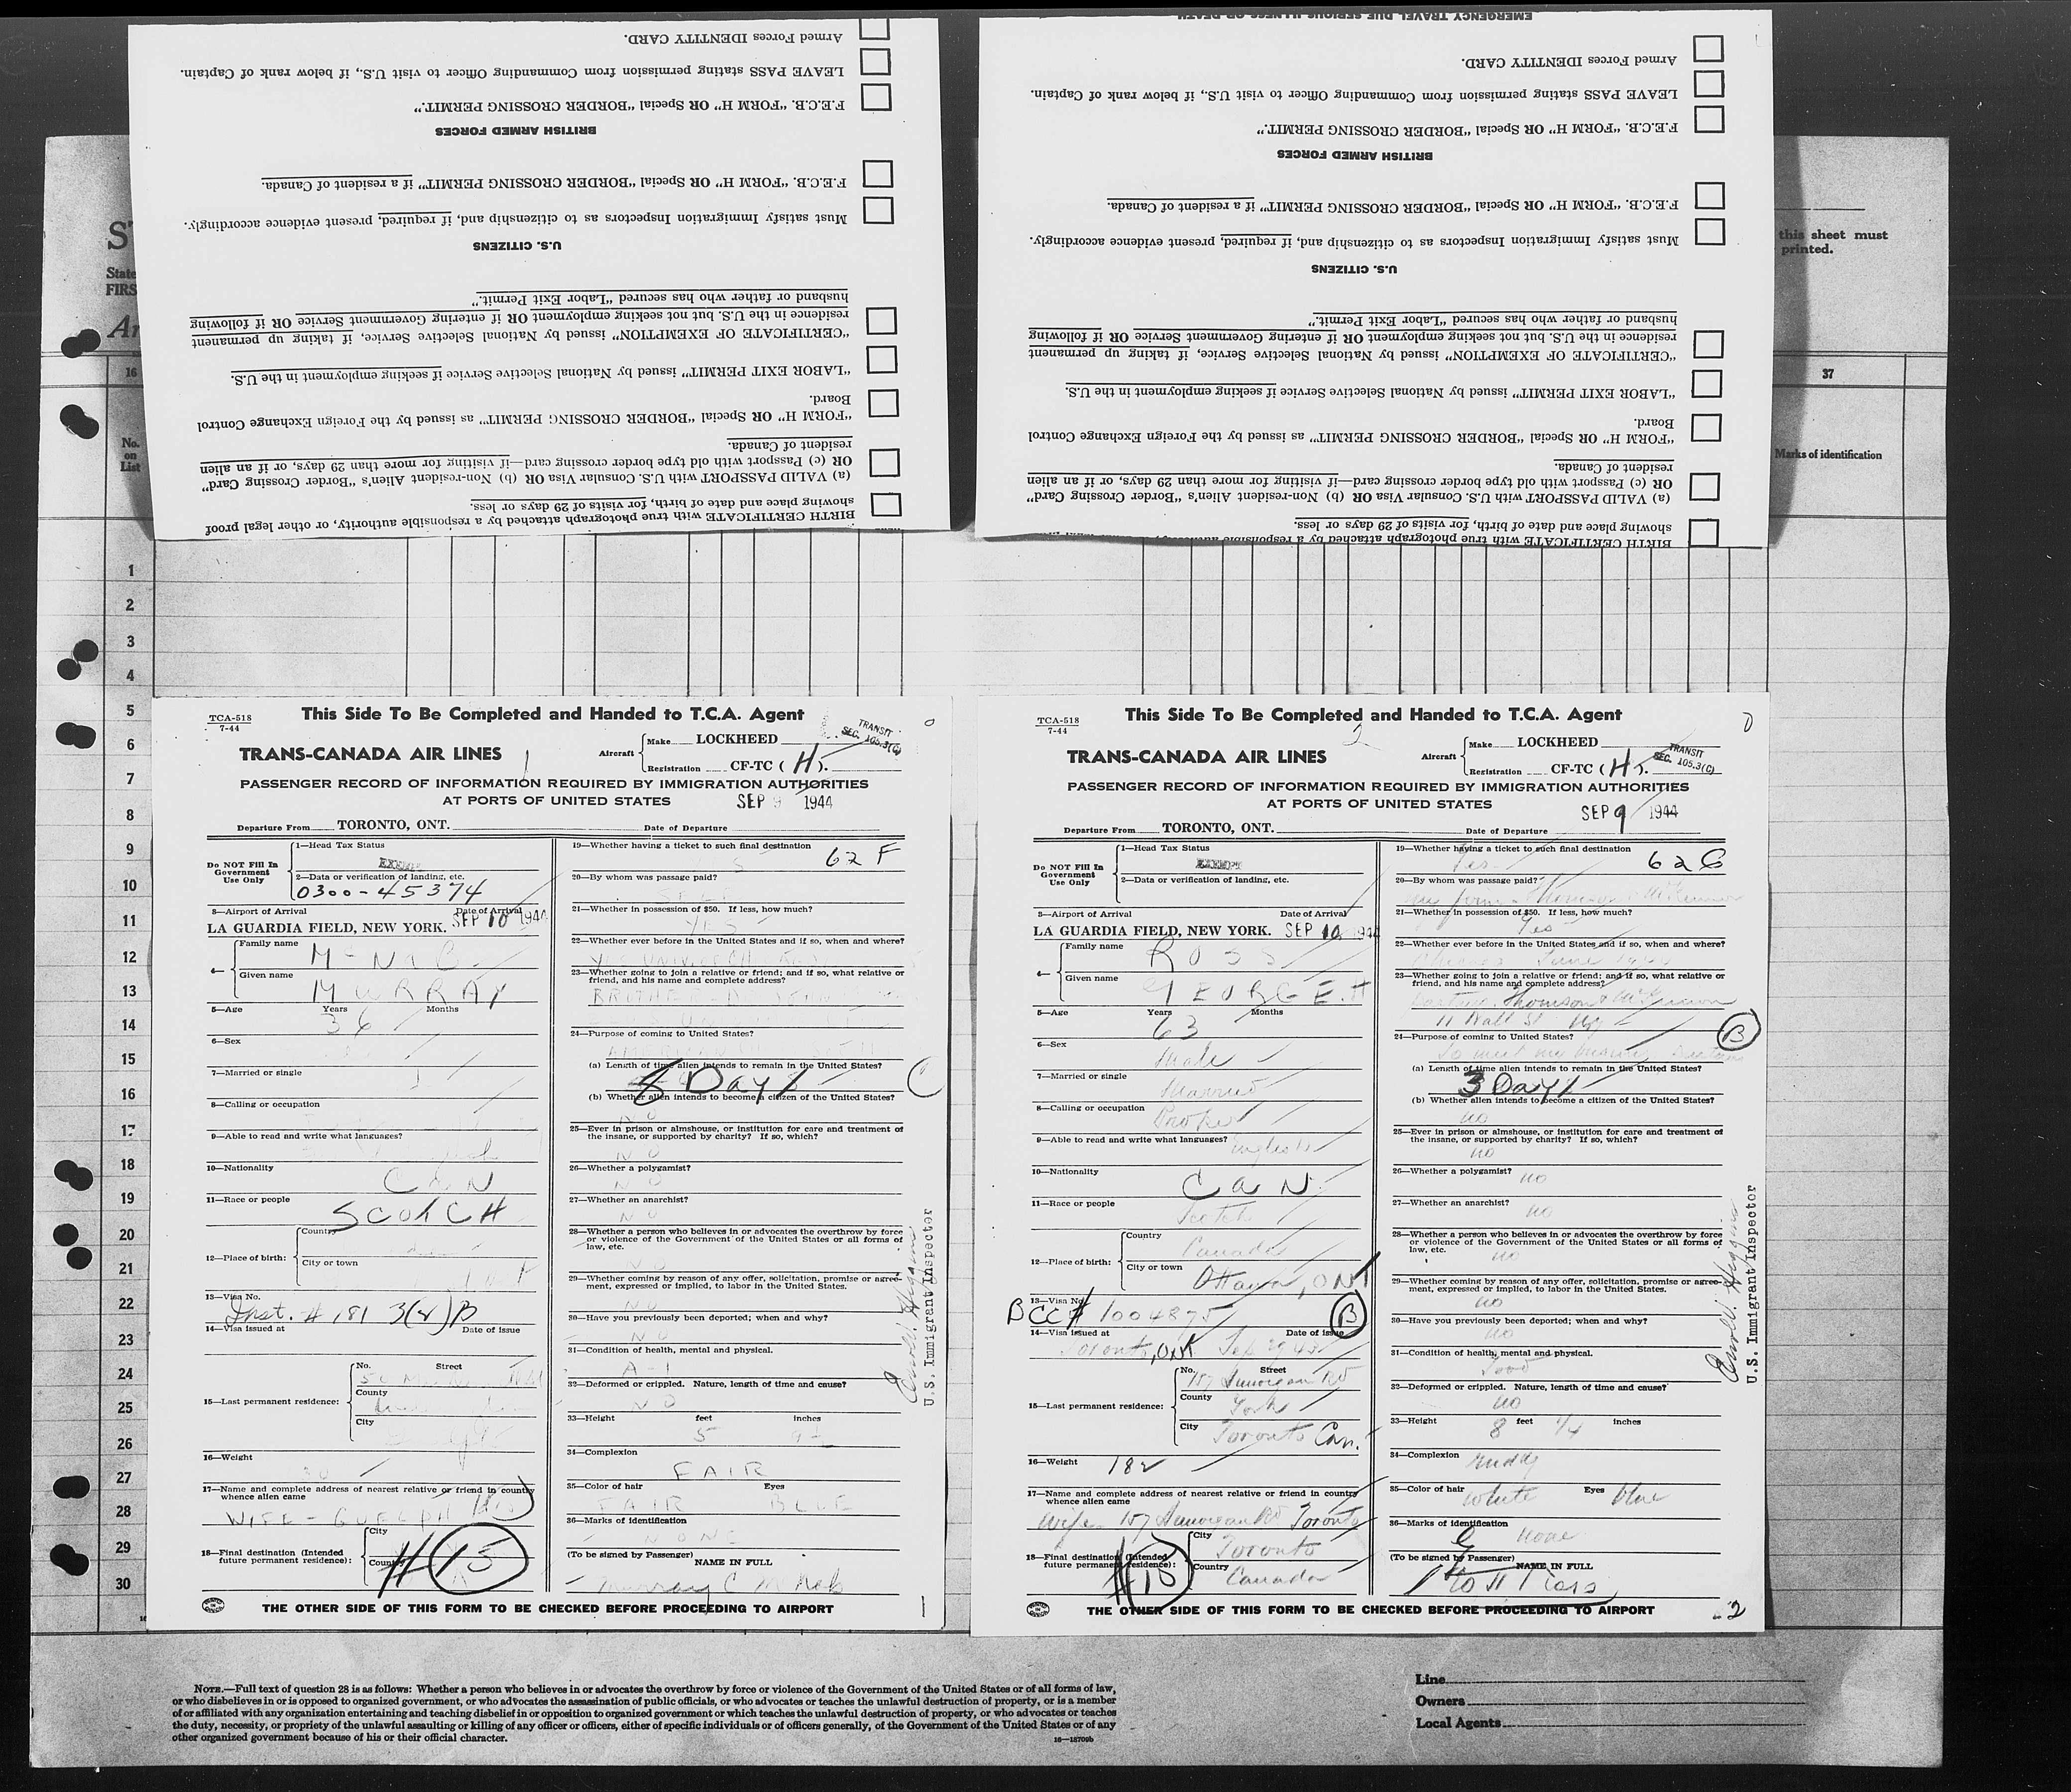 EMERGENCY TRAVEL DUE SERIOUS ILLNESS OR DEATH
Armed Forces IDENTITY CARD.
LEAVE PASS stating permission from Commanding Officer to visit U.S., if below rank of Captain.
F.E.C.B. "FORM H" OR Special "BORDER CROSSING PERMIT."
BRITISH ARMED FORCES
F.E.C.B. "FORM H" OR Special "BORDER CROSSING PERMIT" if a resident of Canada.
Must satisfy Immigration Inspectors as to citizenship and, if required, present evidence accordingly.
U.S. CITIZENS
husband or father who has secured "Labor Exit Permit."
residence in the U.S. but not seeking employment OR if entering Government Service OR if following
"CERTIFICATE OF EXEMPTION" issued by National Selective Service, if taking up permanent
"LABOR EXIT PERMIT" issued by National Selective Service if seeking employment in the U.S.
Board.
"FORM H" OR Special "BORDER CROSSING PERMIT" as issued by the Foreign Exchange Control
resident of Canada.
OR (c) Passport with old type border crossing card—if visiting for more than 29 days, or if an alien
(a) VALID PASSPORT with U.S. Consular Visa OR (b) Non-resident Alien's "Border Crossing Card"
showing place and date of birth, for visits of 29 days or less.
BIRTH CERTIFICATE with true photograph attached by a responsible authority, or other legal proof
Armed Forces IDENTITY CARD.
LEAVE PASS stating permission from Commanding Officer to visit U.S., if below rank of Captain.
F.E.C.B. "FORM H" OR Special "BORDER CROSSING PERMIT."
BRITISH ARMED FORCES
F.E.C.B. "FORM H" OR Special "BORDER CROSSING PERMIT" if a resident of Canada.
Must satisfy Immigration Inspectors as to citizenship and, if required, present evidence accordingly.
U.S. CITIZENS
husband or father who has secured "Labor Exit Permit."
residence in the U.S. but not seeking employment OR if entering Government Service OR if following
"CERTIFICATE OF EXEMPTION" issued by National Selective Service, if taking up permanent
"LABOR EXIT PERMIT" issued by National Selective Service if seeking employment in the U.S.
Board.
"FORM H" OR Special "BORDER CROSSING PERMIT" as issued by the Foreign Exchange Control
resident of Canada.
OR (c) Passport with old type border crossing card—if visiting for more than 29 days, or if an alien
(a) VALID PASSPORT with U.S. Consular Visa OR (b) Non-resident Alien's "Border Crossing Card"
showing place and date of birth, for visits of 29 days or less.
BIRTH CERTIFICATE with true photograph attached by a responsible
State
FIRS
16
No.
on
List
this sheet must
printed.
37
Marks of identification
1
2
3
4
5
6
7
8
9
10
11
12
13
14
15
16
17
18
19
20
21
22
23
24
25
26
27
28
29
30
TCA-518
7-44
This Side To Be Completed and Handed to T.C.A. Agent
TRANS-CANADA AIR LINES 1
Aircraft Make LOCKHEED
Registration CF-TC (H).
TRANSIT
SEC. 105.3(C)
PASSENGER RECORD OF INFORMATION REQUIRED BY IMMIGRATION AUTHORITIES
AT PORTS OF UNITED STATES SEP 9 1944
Departure From TORONTO, ONT. Date of Departure
Do NOT Fill In
Government
Use Only
1—Head Tax Status
EXEMPT
2—Data or verification of landing, etc.
0300-45374
3—Airport of Arrival Date of Arrival
LA GUARDIA FIELD, NEW YORK. SEP 10 1944
4— Family name
Given name
MURRAY
5—Age Years Months
36
6—Sex
7—Married or single
8—Calling or occupation
9—Able to read and write what languages?
10—Nationality
CAN
11—Race or people
SCOTCH
12—Place of birth: Country
City or town
13—Visa No.
Inst. # 181 3(2)B
14—Visa issued at Date of issue
15—Last permanent residence: No. Street
County
City
16—Weight
17—Name and complete address of nearest relative or friend in country
whence alien came
WIFE - GUELPH
18—Final destination (Intended
future permanent residence): City
Country
#15
19—Whether having a ticket to such final destination 62 F
20—By whom was passage paid?
SELF
21—Whether in possession of $50. If less, how much?
YES
22—Whether ever before in the United States and if so, when and where?
23—Whether going to join a relative or friend; and if so, what relative or
friend, and his name and complete address?
BROTHER
24—Purpose of coming to United States?
(a) Length of time alien intends to remain in the United States?
8 Days
(b) Whether alien intends to become a citizen of the United States?
NO
25—Ever in prison or almshouse, or institution for care and treatment of
the insane, or supported by charity? If so, which?
NO
26—Whether a polygamist?
NO
27—Whether an anarchist?
NO
28—Whether a person who believes in or advocates the overthrow by force
or violence of the Government of the United States or all forms of
law, etc.
NO
29—Whether coming by reason of any offer, solicitation, promise or agree-
ment, expressed or implied, to labor in the United States.
NO
30—Have you previously been deported; when and why?
NO
31—Condition of health, mental and physical.
A-1
32—Deformed or crippled. Nature, length of time and cause?
NO
33—Height feet inches
5
34—Complexion
FAIR
35—Color of hair Eyes
FAIR BLUE
36—Marks of identification
NONE
(To be signed by Passenger) NAME IN FULL
Murray C McNab
U.S. Immigrant Inspector
THE OTHER SIDE OF THIS FORM TO BE CHECKED BEFORE PROCEEDING TO AIRPORT
1
TCA-518
7-44
This Side To Be Completed and Handed to T.C.A. Agent
2
TRANS-CANADA AIR LINES
Aircraft Make LOCKHEED
Registration CF-TC (H).
TRANSIT
SEC. 105.3(C)
PASSENGER RECORD OF INFORMATION REQUIRED BY IMMIGRATION AUTHORITIES
AT PORTS OF UNITED STATES SEP 9 1944
Departure From TORONTO, ONT. Date of Departure
Do NOT Fill In
Government
Use Only
1—Head Tax Status
EXEMPT
2—Data or verification of landing, etc.
3—Airport of Arrival Date of Arrival
LA GUARDIA FIELD, NEW YORK. SEP 10 1944
4— Family name
ROSS
Given name
GEORGE. H
5—Age Years Months
63
6—Sex
Male
7—Married or single
Married
8—Calling or occupation
Broker
9—Able to read and write what languages?
English
10—Nationality
CAN.
11—Race or people
Scotch
12—Place of birth: Country
Canada
City or town
Ottawa, ONT
13—Visa No.
BCC# 1004875 B
14—Visa issued at Date of issue
Toronto, Ont
15—Last permanent residence: No. Street
157
County
York
City
Toronto Can.
16—Weight 182
17—Name and complete address of nearest relative or friend in country
whence alien came
Wife 157 Toronto
18—Final destination (Intended
future permanent residence): City
Toronto
Country
Canada
#15
19—Whether having a ticket to such final destination
Yes 62 G
20—By whom was passage paid?
my firm Thomson & McKinnon
21—Whether in possession of $50. If less, how much?
Yes
22—Whether ever before in the United States and if so, when and where?
Chicago June 1944
23—Whether going to join a relative or friend; and if so, what relative or
friend, and his name and complete address?
Partner. Thomson & McKinnon
11 Wall St NY
24—Purpose of coming to United States? B
To meet my partners
(a) Length of time alien intends to remain in the United States?
3 Days
(b) Whether alien intends to become a citizen of the United States?
no
25—Ever in prison or almshouse, or institution for care and treatment of
the insane, or supported by charity? If so, which?
no
26—Whether a polygamist?
no
27—Whether an anarchist?
no
28—Whether a person who believes in or advocates the overthrow by force
or violence of the Government of the United States or all forms of
law, etc.
no
29—Whether coming by reason of any offer, solicitation, promise or agree-
ment, expressed or implied, to labor in the United States.
no
30—Have you previously been deported; when and why?
no
31—Condition of health, mental and physical.
Good
32—Deformed or crippled. Nature, length of time and cause?
no
33—Height 8 feet 1/4 inches
34—Complexion
Ruddy
35—Color of hair White Eyes blue
36—Marks of identification
none
(To be signed by Passenger) NAME IN FULL
Geo H Ross
U.S. Immigrant Inspector
THE OTHER SIDE OF THIS FORM TO BE CHECKED BEFORE PROCEEDING TO AIRPORT
2
NOTE.—Full text of question 28 is as follows: Whether a person who believes in or advocates the overthrow by force or violence of the Government of the United States or of all forms of law,
or who disbelieves in or is opposed to organized government, or who advocates the assassination of public officials, or who advocates or teaches the unlawful destruction of property, or is a member
of or affiliated with any organization entertaining and teaching disbelief in or opposition to organized government or which teaches the unlawful destruction of property, or who advocates or teaches
the duty, necessity, or propriety of the unlawful assaulting or killing of any officer or officers, either of specific individuals or of officers generally, of the Government of the United States or of any
other organized government because of his or their official character.
16—18709b
Line
Owners
Local Agents